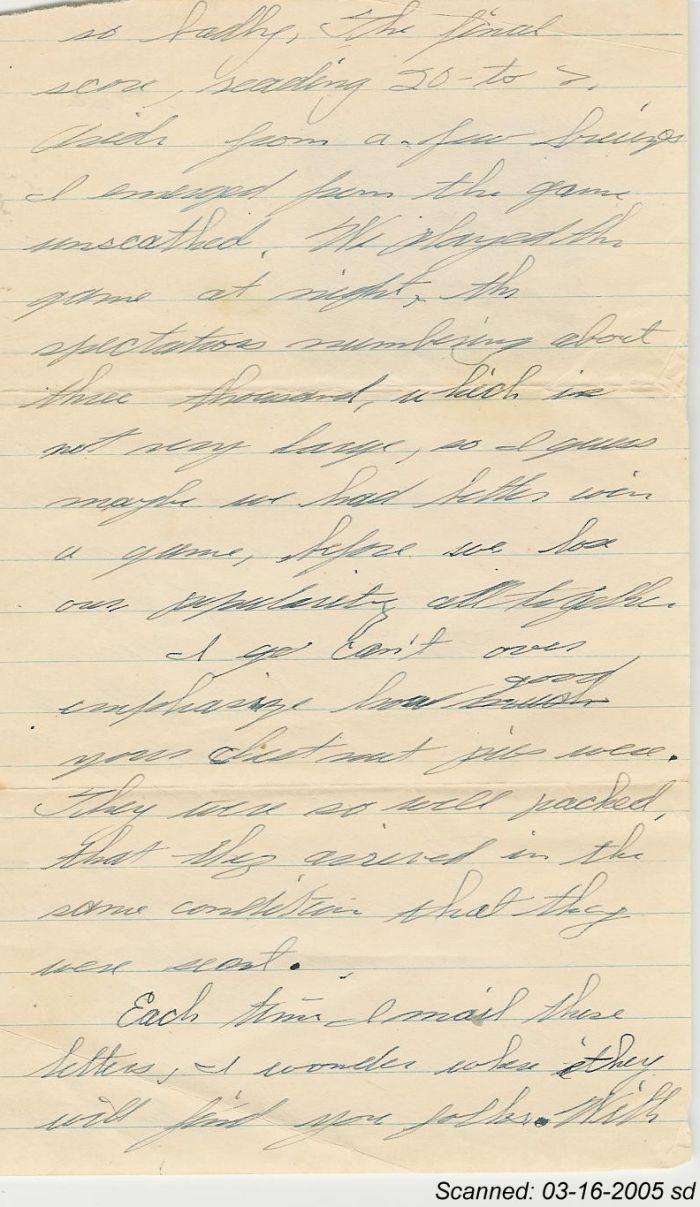 so badly, the final
score, reading 20-to 7.
Aside from a few bruises
I emerged from the game
unscathed. We played the
game at night, the
spectators numbering about
three thousand, which is
not very large, so I guess
maybe we had better win
a game, before we lose
our popularity all-together.
I can't over
emphasize how good
your nut pies were.
They were so well packed,
that they arrived in the
same condition that they
were sent.
Each time I mail these
letters, I wonder where they
will find you folks. With
Scanned: 03-16-2005 sd